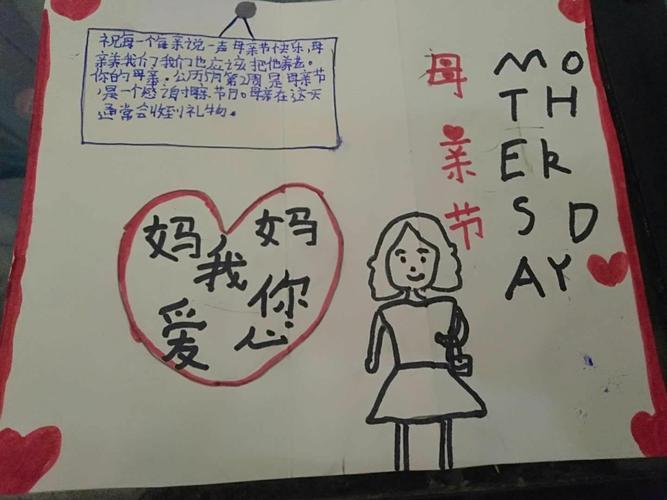 祝每一个母亲说一声母亲节快乐,母
亲养我们了我们也应该把他养老。
你的母亲。公历5月第2周是母亲节
是一个感谢母亲节日。母亲在这天
通常会收到礼物。
母亲节
MO
TH
ER
S D
AY
妈妈
我
爱您